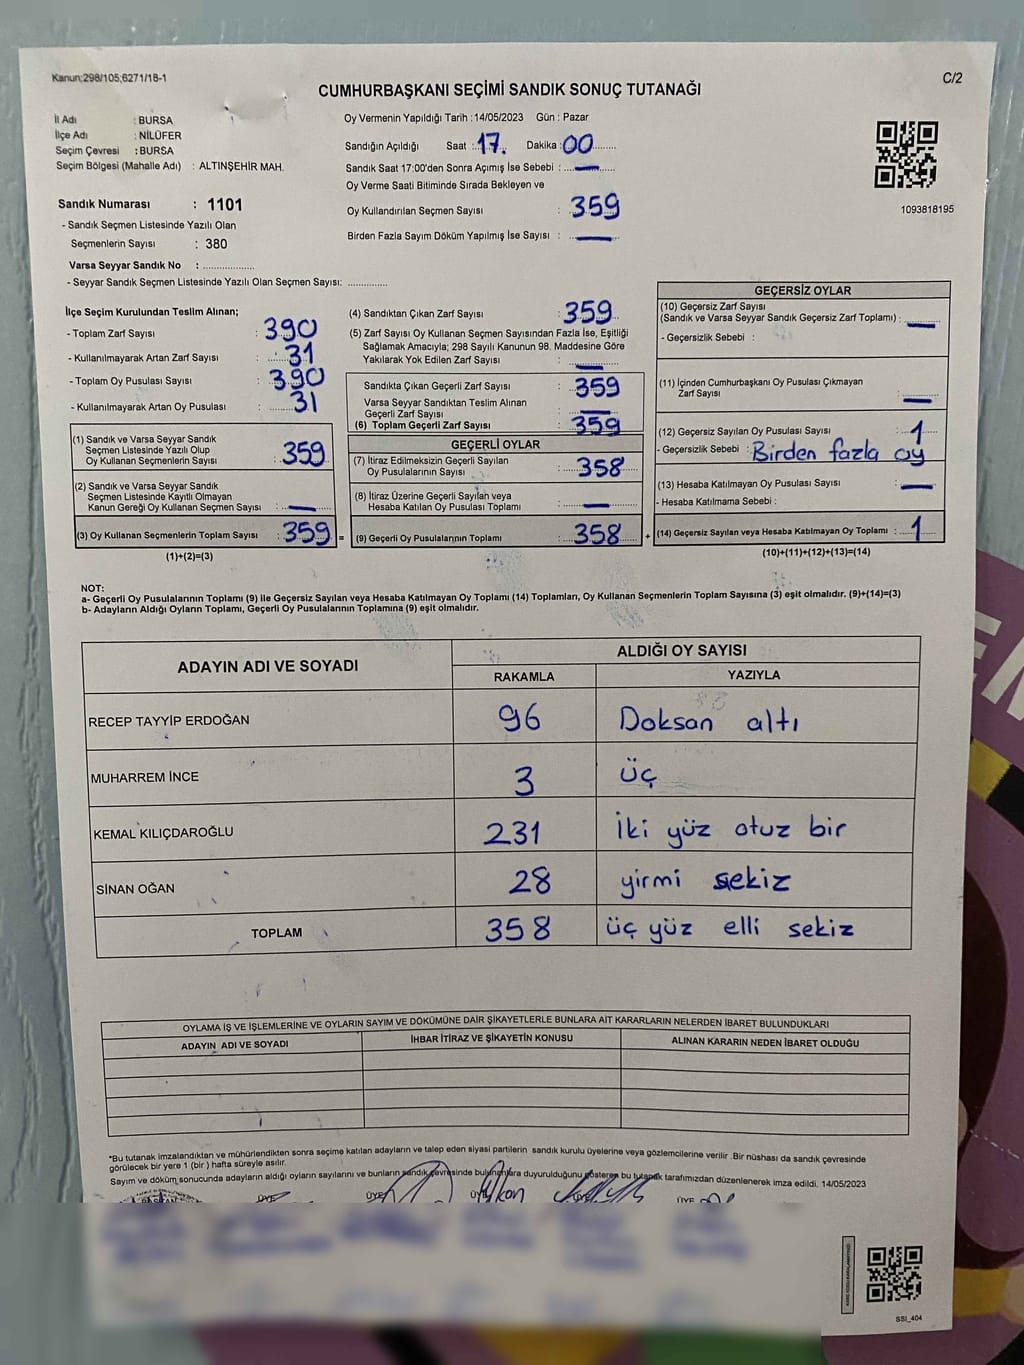 Kanun:298/105,6271/18-1
C/2
CUMHURBAŞKANI SEÇİMİ SANDIK SONUÇ TUTANAĞI
İl Adı : BURSA
İlçe Adı : NİLÜFER
Seçim Çevresi : BURSA
Seçim Bölgesi (Mahalle Adı) : ALTINŞEHİR MAH.
Sandık Numarası : 1101
- Sandık Seçmen Listesinde Yazılı Olan
Seçmenlerin Sayısı : 380
Varsa Seyyar Sandık No : ..................
- Seyyar Sandık Seçmen Listesinde Yazılı Olan Seçmen Sayısı: ..............
Oy Vermenin Yapıldığı Tarih :14/05/2023 Gün : Pazar
Sandığın Açıldığı Saat : 17. Dakika : 00
Sandık Saat 17:00'den Sonra Açımış İse Sebebi : —
Oy Verme Saati Bitiminde Sırada Bekleyen ve
Oy Kullandırılan Seçmen Sayısı : 359
Birden Fazla Sayım Döküm Yapılmış İse Sayısı : —
1093818195
İlçe Seçim Kurulundan Teslim Alınan;
- Toplam Zarf Sayısı : 390
- Kullanılmayarak Artan Zarf Sayısı : 31
- Toplam Oy Pusulası Sayısı : 390
- Kullanılmayarak Artan Oy Pusulası : 31
(1) Sandık ve Varsa Seyyar Sandık
Seçmen Listesinde Yazılı Olup
Oy Kullanan Seçmenlerin Sayısı : 359
(2) Sandık ve Varsa Seyyar Sandık
Seçmen Listesinde Kayıtlı Olmayan
Kanun Gereği Oy Kullanan Seçmen Sayısı : —
(3) Oy Kullanan Seçmenlerin Toplam Sayısı : 359 =
(1)+(2)=(3)
(4) Sandıktan Çıkan Zarf Sayısı : 359
(5) Zarf Sayısı Oy Kullanan Seçmen Sayısından Fazla İse, Eşitliği
Sağlamak Amacıyla; 298 Sayılı Kanunun 98. Maddesine Göre
Yakılarak Yok Edilen Zarf Sayısı : —
Sandıkta Çıkan Geçerli Zarf Sayısı : 359
Varsa Seyyar Sandıktan Teslim Alınan
Geçerli Zarf Sayısı : —
(6) Toplam Geçerli Zarf Sayısı : 359
GEÇERLİ OYLAR
(7) İtiraz Edilmeksizin Geçerli Sayılan
Oy Pusulalarının Sayısı : 358
(8) İtiraz Üzerine Geçerli Sayılan veya
Hesaba Katılan Oy Pusulası Toplamı : —
(9) Geçerli Oy Pusulalarının Toplamı : 358 +
GEÇERSİZ OYLAR
(10) Geçersiz Zarf Sayısı
(Sandık ve Varsa Seyyar Sandık Geçersiz Zarf Toplamı) : —
- Geçersizlik Sebebi :
(11) İçinden Cumhurbaşkanı Oy Pusulası Çıkmayan
Zarf Sayısı : —
(12) Geçersiz Sayılan Oy Pusulası Sayısı : 1
- Geçersizlik Sebebi : Birden fazla oy
(13) Hesaba Katılmayan Oy Pusulası Sayısı : —
- Hesaba Katılmama Sebebi :
(14) Geçersiz Sayılan veya Hesaba Katılmayan Oy Toplamı : 1
(10)+(11)+(12)+(13)=(14)
NOT:
a- Geçerli Oy Pusulalarının Toplamı (9) ile Geçersiz Sayılan veya Hesaba Katılmayan Oy Toplamı (14) Toplamları, Oy Kullanan Seçmenlerin Toplam Sayısına (3) eşit olmalıdır. (9)+(14)=(3)
b- Adayların Aldığı Oyların Toplamı, Geçerli Oy Pusulalarının Toplamına (9) eşit olmalıdır.
ADAYIN ADI VE SOYADI
ALDIĞI OY SAYISI
RAKAMLA YAZIYLA
RECEP TAYYİP ERDOĞAN 96 Doksan altı
MUHARREM İNCE 3 üç
KEMAL KILIÇDAROĞLU 231 İki yüz otuz bir
SİNAN OĞAN 28 yirmi sekiz
TOPLAM 358 üç yüz elli sekiz
OYLAMA İŞ VE İŞLEMLERİNE VE OYLARIN SAYIM VE DÖKÜMÜNE DAİR ŞİKAYETLERLE BUNLARA AİT KARARLARIN NELERDEN İBARET BULUNDUKLARI
ADAYIN ADI VE SOYADI İHBAR İTİRAZ VE ŞİKAYETİN KONUSU ALINAN KARARIN NEDEN İBARET OLDUĞU
*Bu tutanak imzalandıktan ve mühürlendikten sonra seçime katılan adayların ve talep eden siyasi partilerin sandık kurulu üyelerine veya gözlemcilerine verilir .Bir nüshası da sandık çevresinde
görülecek bir yere 1 (bir ) hafta süreyle asılır.
Sayım ve döküm sonucunda adayların aldığı oyların sayılarını ve bunların sandık çevresinde bulunanlara duyurulduğunu gösteren bu tutanak tarafımızdan düzenlenerek imza edildi. 14/05/2023
BAŞKAN ÜYE ÜYE ÜYE ÜYE ÜYE
SSI_404